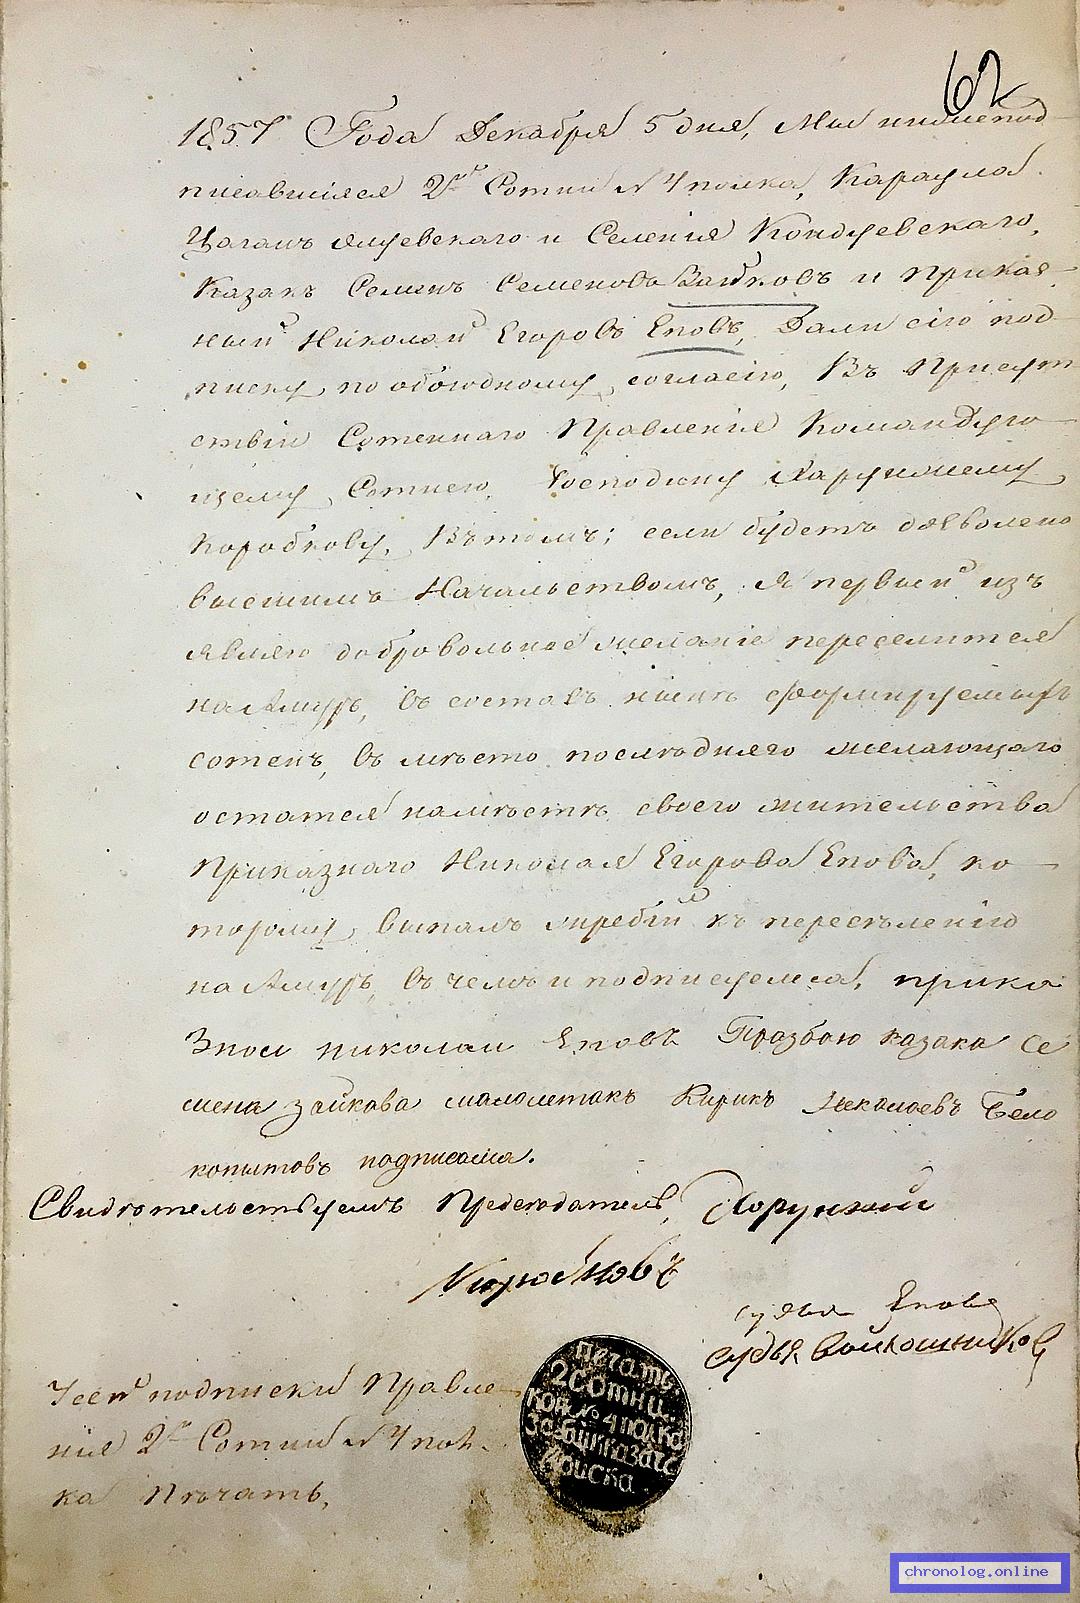 62
1857 Года Декабря 5 дня, Мы нижепод-
писавшіяся 2й Сотни № 4 полка, Караула
Цаган олуевскаго и Селенія Кондуевскаго,
Казакъ Семенъ Семеновъ Зайковъ и Приказ-
ный Николай Егоровъ Еповъ, Дали сію под-
писку, по обоюдному согласію, Въ Присут-
ствіи Сотеннаго Правленія Командую-
щему Сотнею, Господину Хорунжему
Коробкову, Въ томъ; если будетъ дозволено
высшимъ Начальствомъ, Я первый изъ
являю добровольное желаніе переселится
на Амуръ, въ составъ нынѣ формируемыхъ
сотенъ, въ мѣсто послѣдняго желающаго
остатся на мѣстѣ своего жительства
Приказнаго Николая Егорова Епова, ко-
торому, выпалъ жребій къ переселенію
на Амуръ, въ чемъ и подписуемся, прика
зной николай Еповъ Празбою казака Се
мена зайкова малолетакъ Кирикъ Николаевъ Бело
копытовъ подписался.
Свидѣтельствуемъ Предсѣдатель, Хорунжий
Коробковъ
судья Еповъ
судья Войлошниковъ
У сей подписки Правле-
нія 2й Сотни № 4 пол-
ка Печать,
печать
2 Сотни
Кон № 4 полка
Забайказаче
войска
chronolog.online